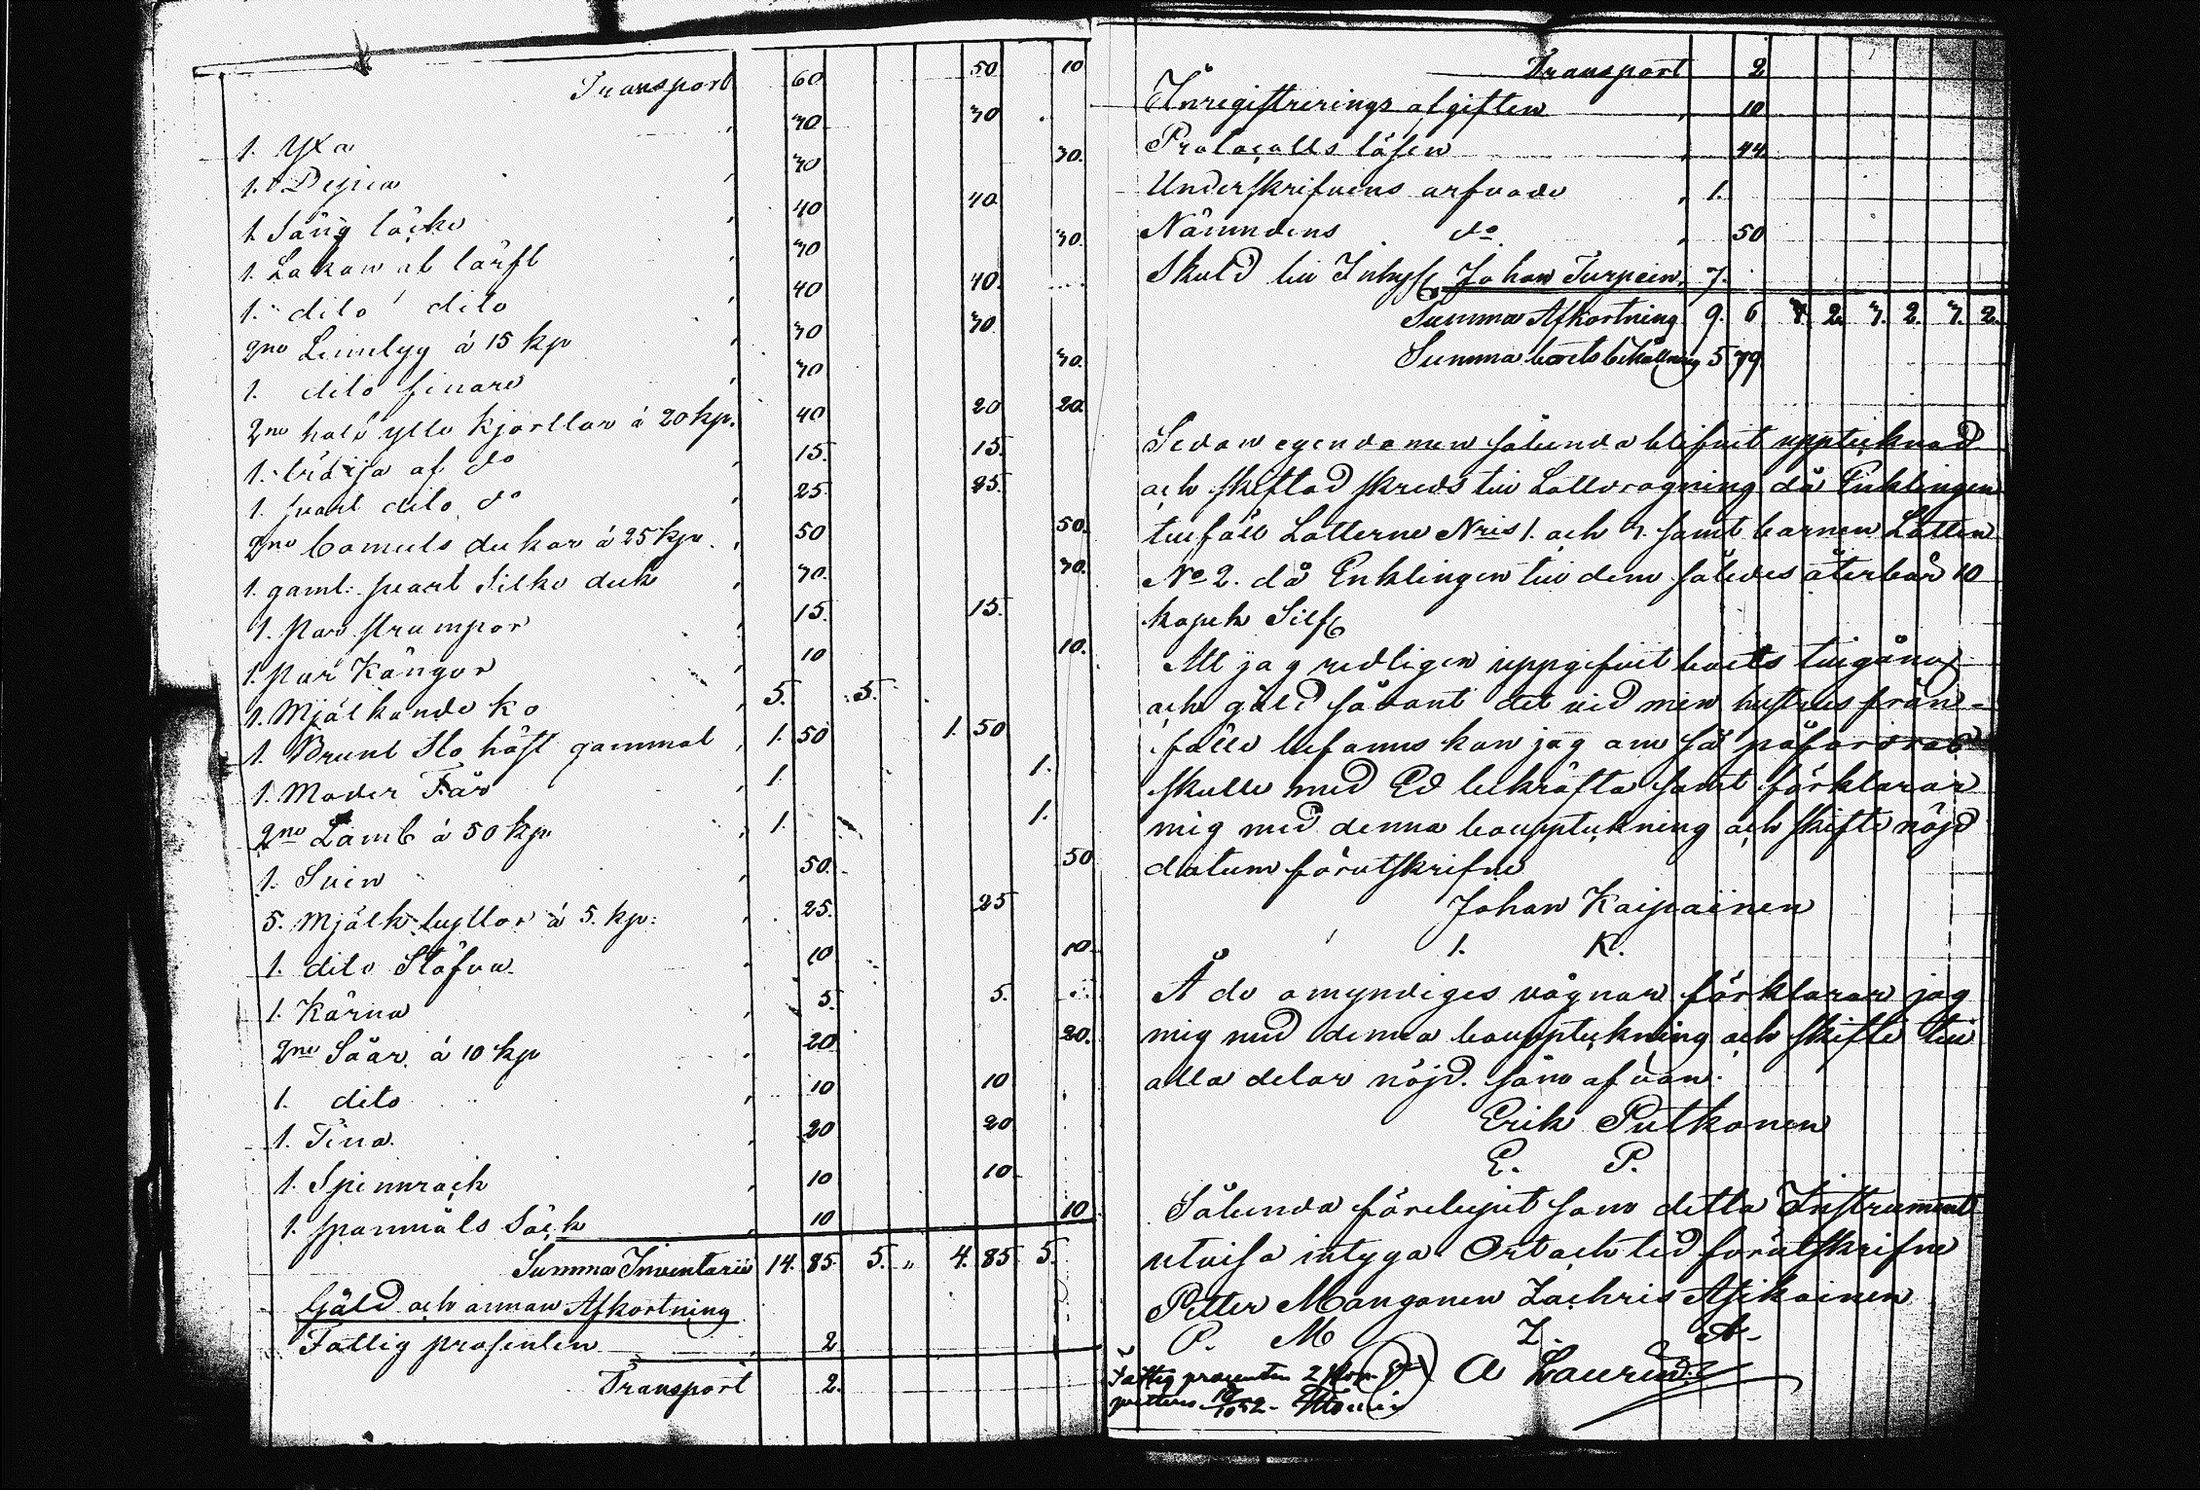 Transport 60 50 10
1. Yxa 30 30
1. 30 30.
1 Säng täcke 40 40
1. Lakan af lärft 30 30.
1. dito dito 40 40.
2ne Linntyg á 15 kp 30 30
1. dito finare 30 30.
2ne half ylle kjortlar á 20 kp. 40 20 20
1. tröija af do 15. 15.
1. svart dito do 25. 25.
2ne bomuls dukar á 25 kp. 50 50.
1. gaml: svart Silke duk 30. 30.
1. Par strumpor 15. 15.
1. Par Kängor 10 10.
1. Mjölkande ko 5. 5.
1. Brunt Sto häst gammal 1. 50 1. 50
1. Moder Får 1. 1.
2ne Lamb á 50 kp. 1. 1.
1. Svin 50. 50
5. Mjölk byttor á 5. kp: 25. 25
1. dito Stäfva 10 10.
1. Kärna 5. 5.
2ne Såar á 10 kp 20 20.
1. dito 10 10
1. Tina 20 20
1. Spinnrock 10 10
1. spanmåls Säck 10 10
Summa Inventarii 14. 85. 5. " 4. 85 5.
Gäld och annan Afkortning
Fattig prosenten 2
Transport 2.
Transport 2
Inregistrerings afgiften 10
Protocolls lösen 44
Underskrifvens arfvode 1.
Nämndens do 50
Skuld till Inhys Johan Turpein, 7.
Summa Afkortning 9. 6 2. 2. 2.
Summa boets behållning 5 79.
Sedan egendomen sålunda blifvit upptecknad
och skiftad skreds till Lottdragning då Enklingen
tillföll Lotterne Nris 1. och 3. samt barnen Lotten
No 2. då Enklingen till dem således återbär 10
kopek Silf
Att jag redligen uppgifvit boets tillgång
och gäld såvant det vid min hustrus från-
fälle befanns kan jag om så påfordrad
skulle med Ed bekräfta samt förklarar
mig med denna bouppteckning och skifte nöjd
datum förutskrifne
Johan Kaipainen
I. K.
Å de omyndiges vägnar förklarar jag
mig med denna bouppteckning och skifte till
alla delar nöjd. som ofvan.
Erik Putkonen
E. P.
Sålunda förelupit som detta Instrument
utvisa intyga Ort och tid förutskrifne
Petter Manganen Zachris Asikainen
P. M Z. A.
Fattig procenten 2 Kop.
A Laurin